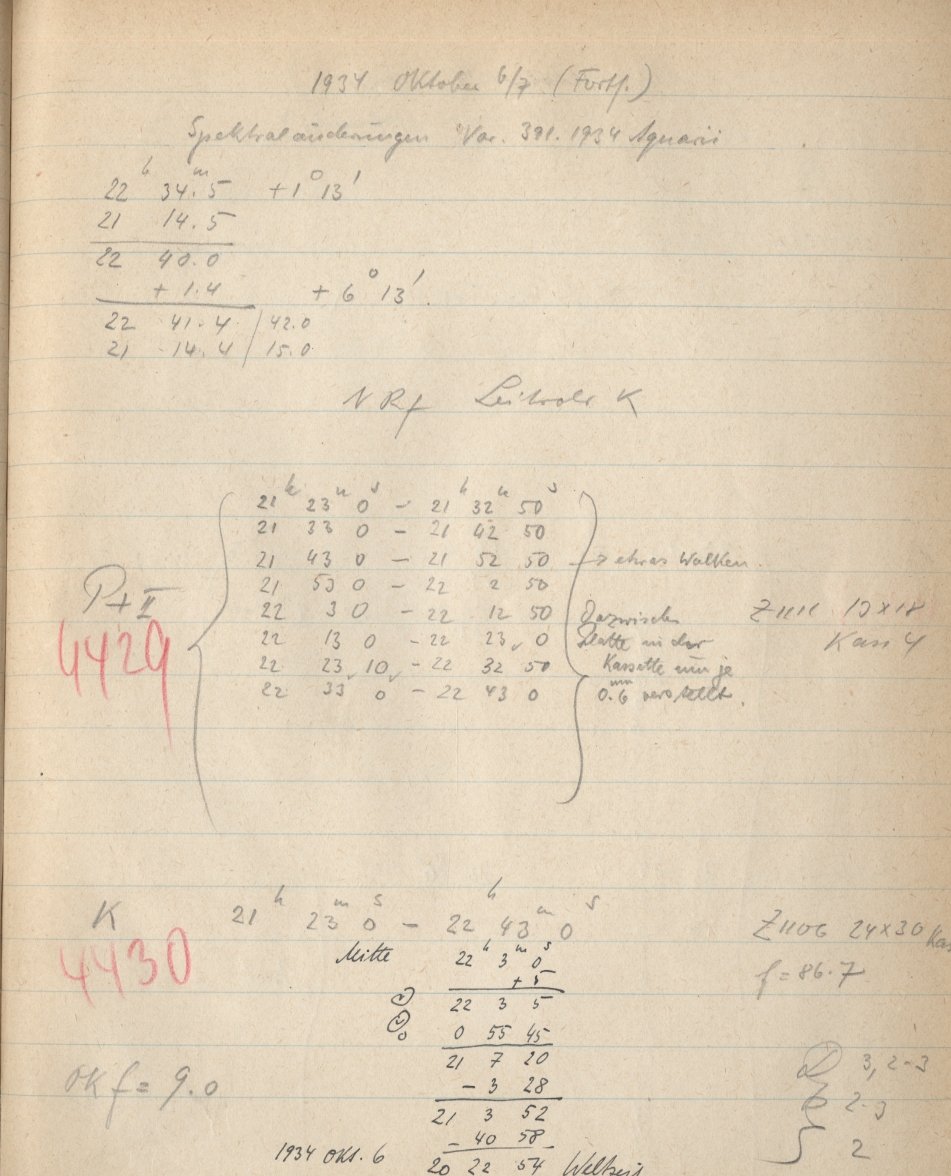 1934 Oktober 6/7 (Fortf.)
Spektraländerungen Var. 391.1934 Aquarii
22h 34m.5 +1° 13'
21 14.5
22 40.0
+ 1.4 + 6° 13'.
22 41.4 / 42.0
21 14.4 / 15.0
N R f Leitrohr K
21h 23m 0s - 21h 32m 50s
21 33 0 - 21 42 50
21 43 0 - 21 52 50 → etwas Wolken.
21 53 0 - 22 2 50
P+II
22 3 0 - 22 12 50 Dazwischen 13x18
22 13 0 - 22 23 0 Platte in der Kass 4
4429
22 23 10 - 22 32 50 Kassette um je
22 33 0 - 22 43 0 0.6 mm verstellt.
K 21h 23m 0s - 22h 43m 0s Z1106 24x30
4430
Mitte 22h 3m 0s
+ 5 f = 86.7
22 3 5
0 55 45
21 7 20
- 3 28
OK f = 9.0
3, 2-3
2-3
21 3 52
- 40 58
2
1934 Okt. 6 20 22 54 Weltzeit